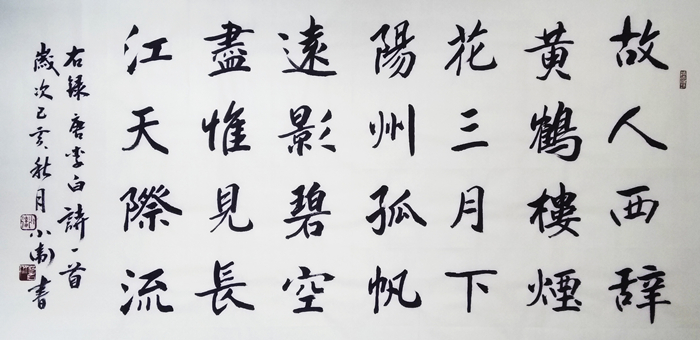 故人西辞
黄鶴樓煙
花三月下
陽州孤帆
遠影碧空
盡惟見長
江天際流
右録唐李白詩一首
歲次己亥秋月小衛書